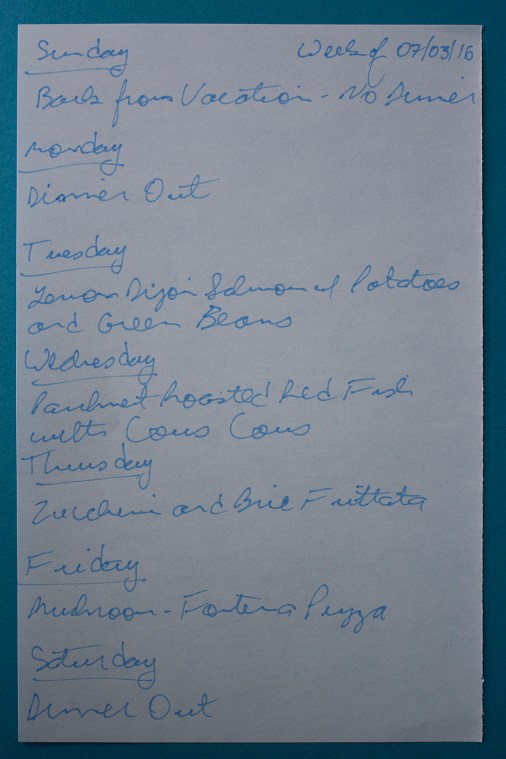 Sunday Week of 07/03/16
Back from Vacation - No Dinner
Monday
Dinner Out
Tuesday
Lemon Dijon Salmon w/ Potatoes
and Green Beans
Wednesday
Parchment Roasted Red Fish
with Cous Cous
Thursday
Zucchini and Brie Frittata
Friday
Mushroom - Fontina Pizza
Saturday
Dinner Out